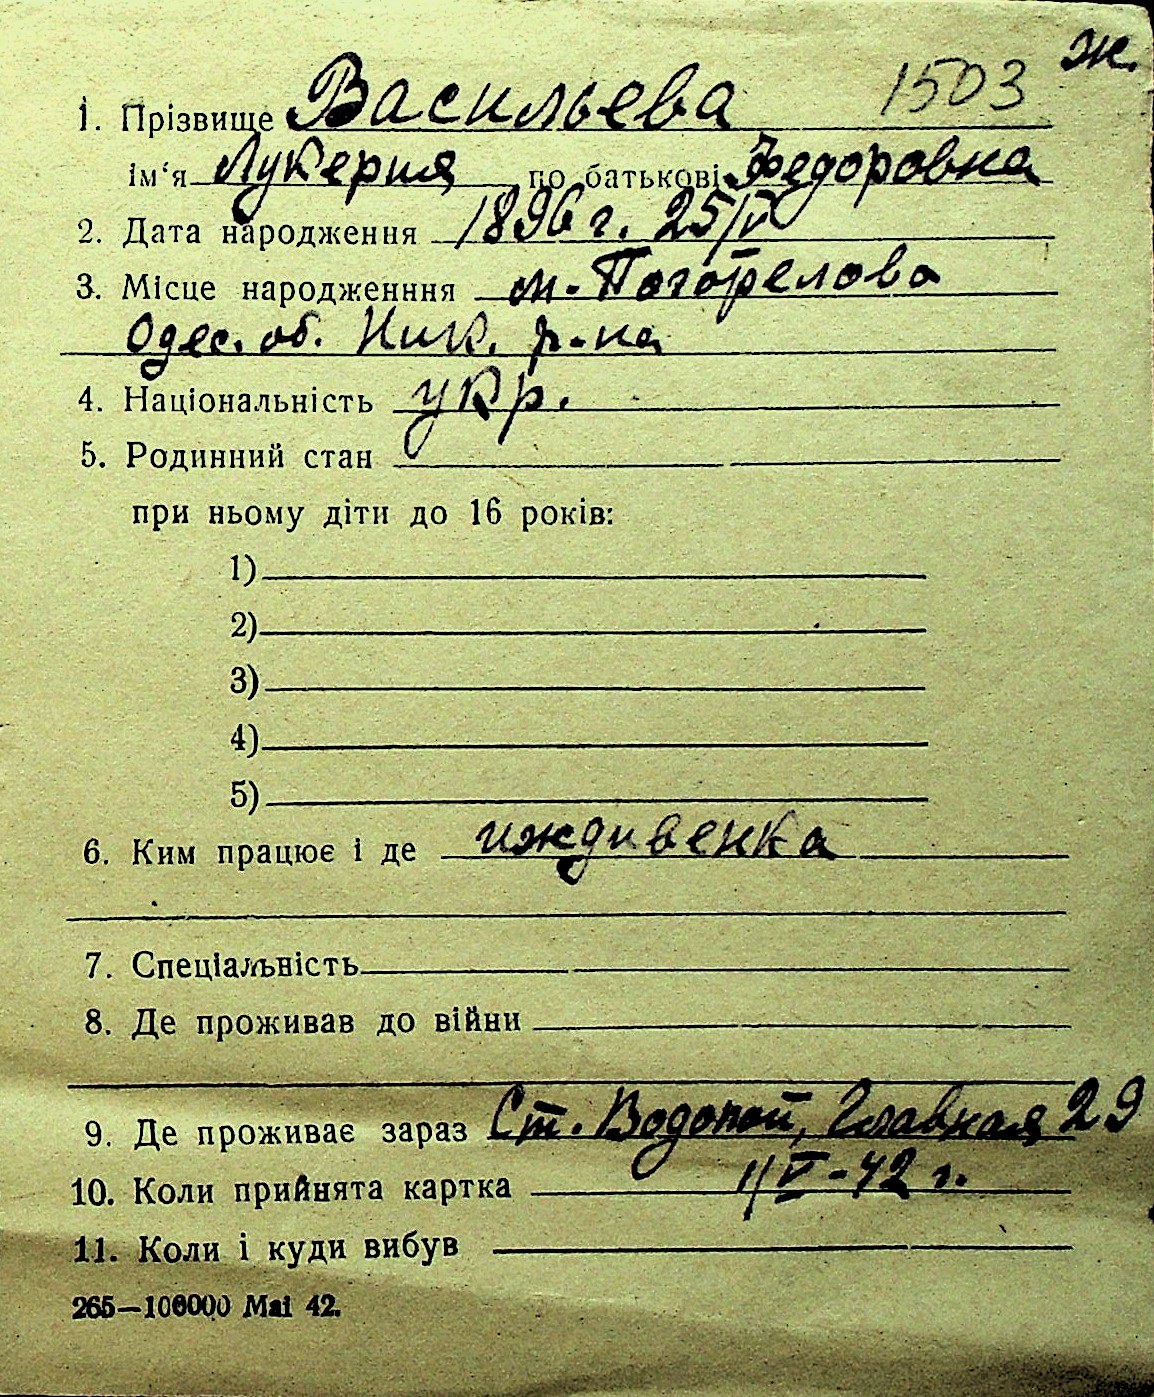 ж.
1503
1. Прізвище Васильева
ім‘я Лукерия по батькові Федоровна
2. Дата народження 1896 г. 25/IV
3. Місце народженння м. Погорелова
Одес. об. Ник. р-на
4. Національність укр.
5. Родинний стан
при ньому діти до 16 років:
1)
2)
3)
4)
5)
6. Ким працює і де иждивенка
7. Спеціальність
8. Де проживав до війни
9. Де проживає зараз Ст. Водопой, Главная 29
10. Коли прийнята картка 1/V-42 г.
11. Коли і куди вибув
265—100000 Mai 42.